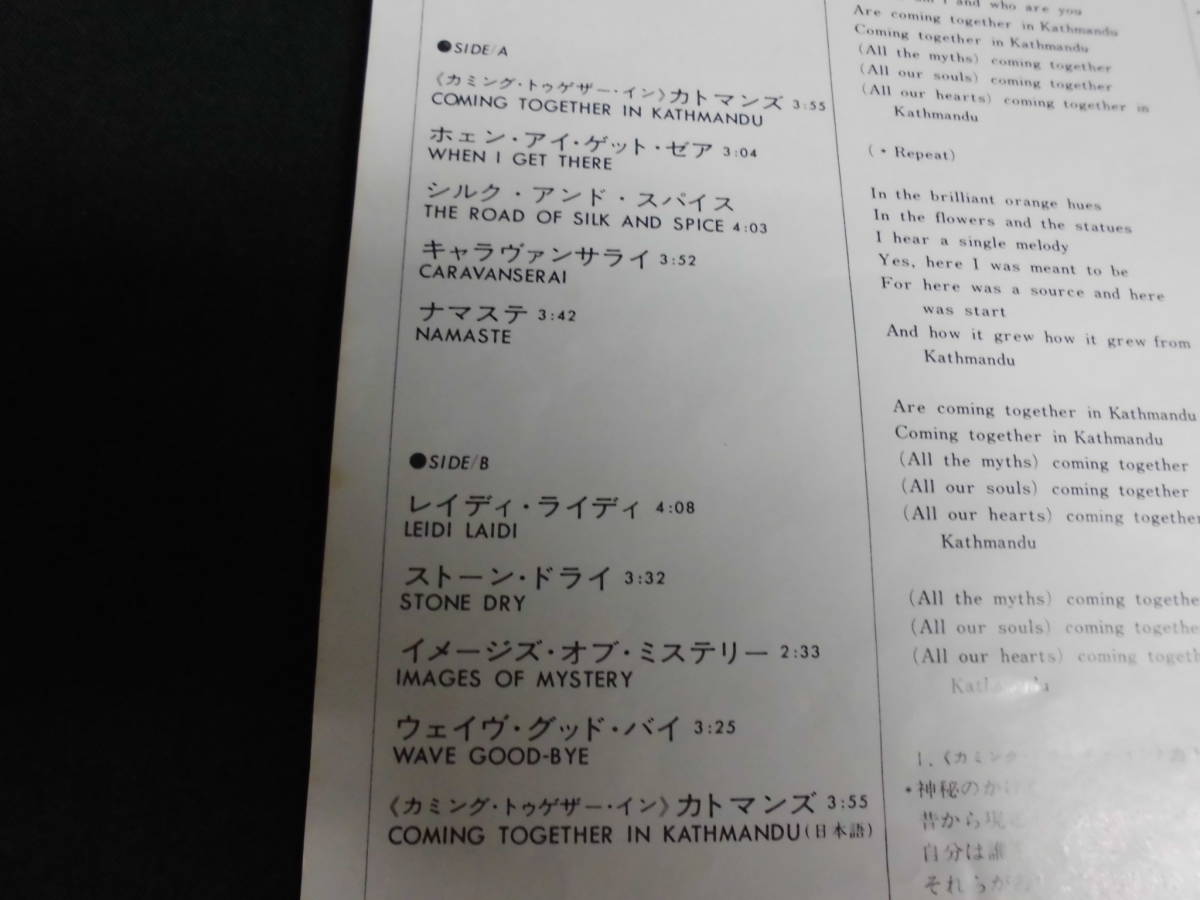 ●SIDE/A
《カミング・トゥゲザー・イン》カトマンズ 3:55
COMING TOGETHER IN KATHMANDU
ホェン・アイ・ゲット・ゼア 3:04
WHEN I GET THERE
シルク・アンド・スパイス
THE ROAD OF SILK AND SPICE 4:03
キャラヴァンサライ 3:52
CARAVANSERAI
ナマステ 3:42
NAMASTE
●SIDE/B
レイディ・ライディ 4:08
LEIDI LAIDI
ストーン・ドライ 3:32
STONE DRY
イメージズ・オブ・ミステリー 2:33
IMAGES OF MYSTERY
ウェイヴ・グッド・バイ 3:25
WAVE GOOD-BYE
《カミング・トゥゲザー・イン》カトマンズ 3:55
COMING TOGETHER IN KATHMANDU(日本語)
and who are you
Are coming together in Kathmandu
Coming together in Kathmandu
(All the myths) coming together
(All our souls) coming together
(All our hearts) coming together in
Kathmandu
(* Repeat)
In the brilliant orange hues
In the flowers and the statues
I hear a single melody
Yes, here I was meant to be
For here was a source and here
was start
And how it grew how it grew from
Kathmandu
Are coming together in Kathmandu
Coming together in Kathmandu
(All the myths) coming together
(All our souls) coming together
(All our hearts) coming together
Kathmandu
(All the myths) coming togethe
(All our souls) coming togethe
(All our hearts) coming togeth
1.《カミング
・神秘のか
昔から現
自分は誰
それらが